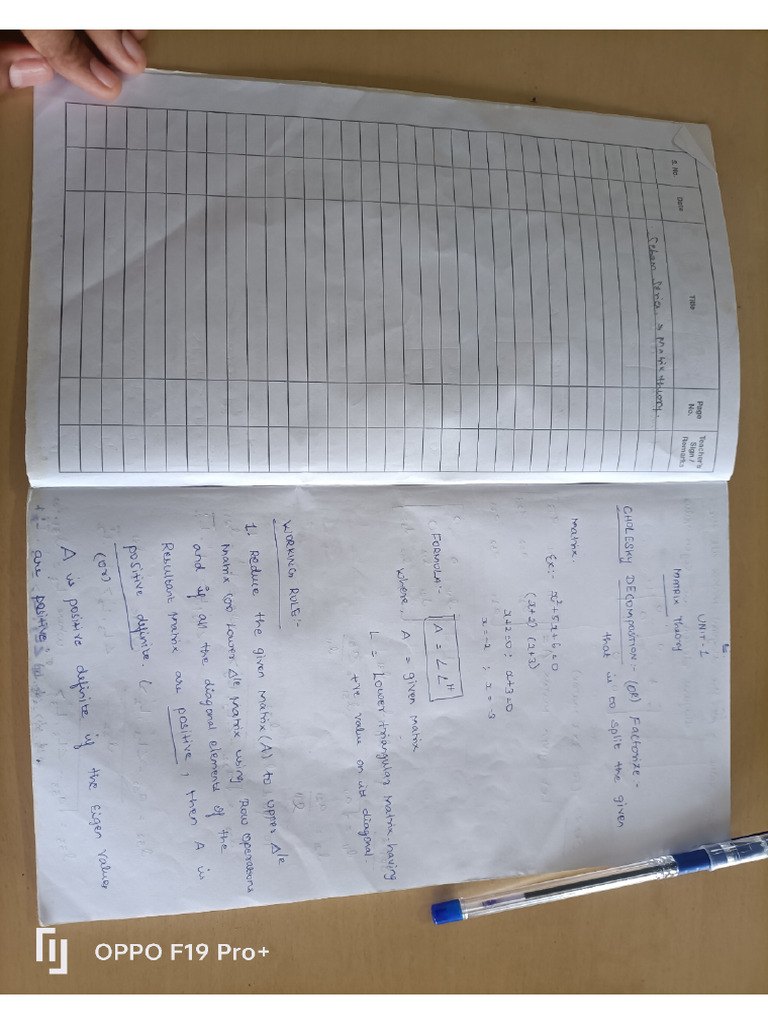 S. No.
Date
Title
Page No.
Teacher's Sign / Remarks
Matrix theory.
UNIT-1
MATRIX Theory
CHOLESKY DECOMPOSTION:- (OR) Factorize -
that is to split the given
matrix.
Ex:- x²+5x+6=0
(x+2) (x+3)
x+2=0 ; x+3=0
x=-2 ; x=-3
FORMULA:- A = LLᴴ
where, A = given matrix
L = Lower triangular matrix having
+ve value on its diagonal.
WORKING RULE:-
1. Reduce the given matrix (A) to upper Δle
matrix (or) Lower Δle matrix using Row operations
and if all the diagonal elements of the
Resultant matrix are positive, then A is
positive definite.
(OR)
A is positive definite if the Eigen values
are positive
OPPO F19 Pro+